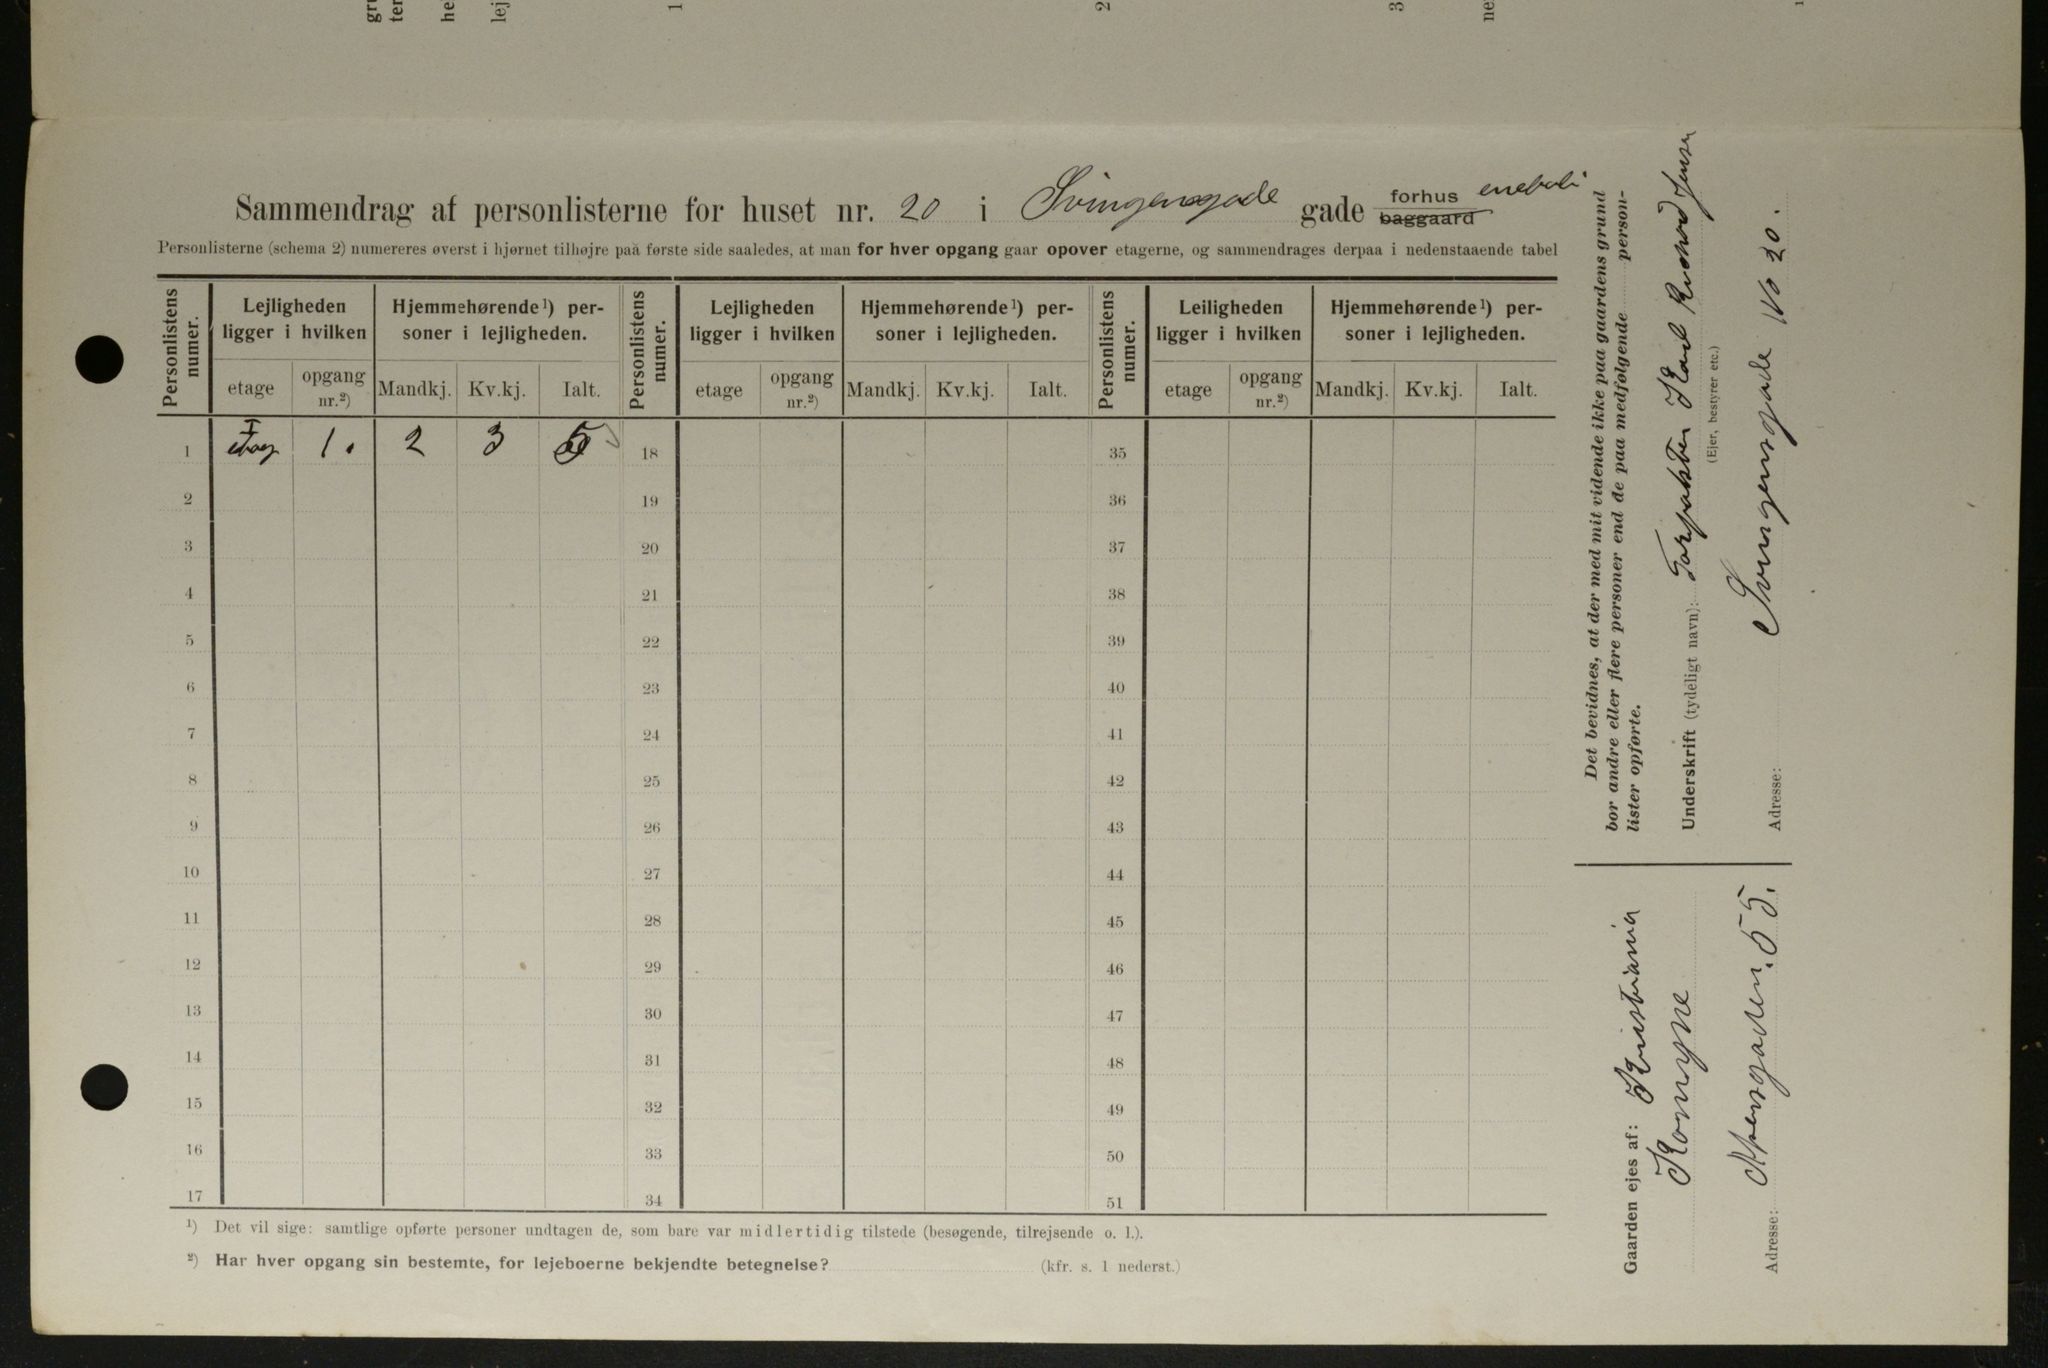 Sammendrag af personlisterne for huset nr. 20 i Svingensgade gade forhus baggaard eneboli
Personlisterne (schema 2) numereres øverst i hjørnet tilhøjre paa første side saaledes, at man for hver opgang gaar opover etagerne, og sammendrages derpaa i nedenstaaende tabel
Personlistens numer. Lejligheden ligger i hvilken Hjemmehørende¹) personer i lejligheden. Personlistens numer. Lejligheden ligger i hvilken Hjemmehørende¹) personer i lejligheden. Personlistens numer. Leiligheden ligger i hvilken Hjemmehørende¹) personer i lejligheden.
etage opgang nr.²) Mandkj. Kv.kj. Ialt. etage opgang nr.²) Mandkj. Kv.kj. Ialt. etage opgang nr.²) Mandkj. Kv.kj. Ialt.
1 I etag 1. 2 3 5 18 35
2 19 36
3 20 37
4 21 38
5 22 39
6 23 40
7 24 41
8 25 42
9 26 43
10 27 44
11 28 45
12 29 46
13 30 47
14 31 48
15 32 49
16 33 50
17 34 51
¹) Det vil sige: samtlige opførte personer undtagen de, som bare var midlertidig tilstede (besøgende, tilrejsende o. l.).
²) Har hver opgang sin bestemte, for lejeboerne bekjendte betegnelse? (kfr. s. 1 nederst.)
Det bevidnes, at der med mit vidende ikke paa gaardens grund
bor andre eller flere personer end de paa medfølgende person-
lister opførte.
Underskrift (tydeligt navn): Karl Jensen
(Ejer, bestyrer etc.)
Adresse: Svingensgade No 20.
Gaarden ejes af: Kristiania
Komune
Adresse: Akersgaden 55.
gru
ter
he
lej
1
2
3
ne